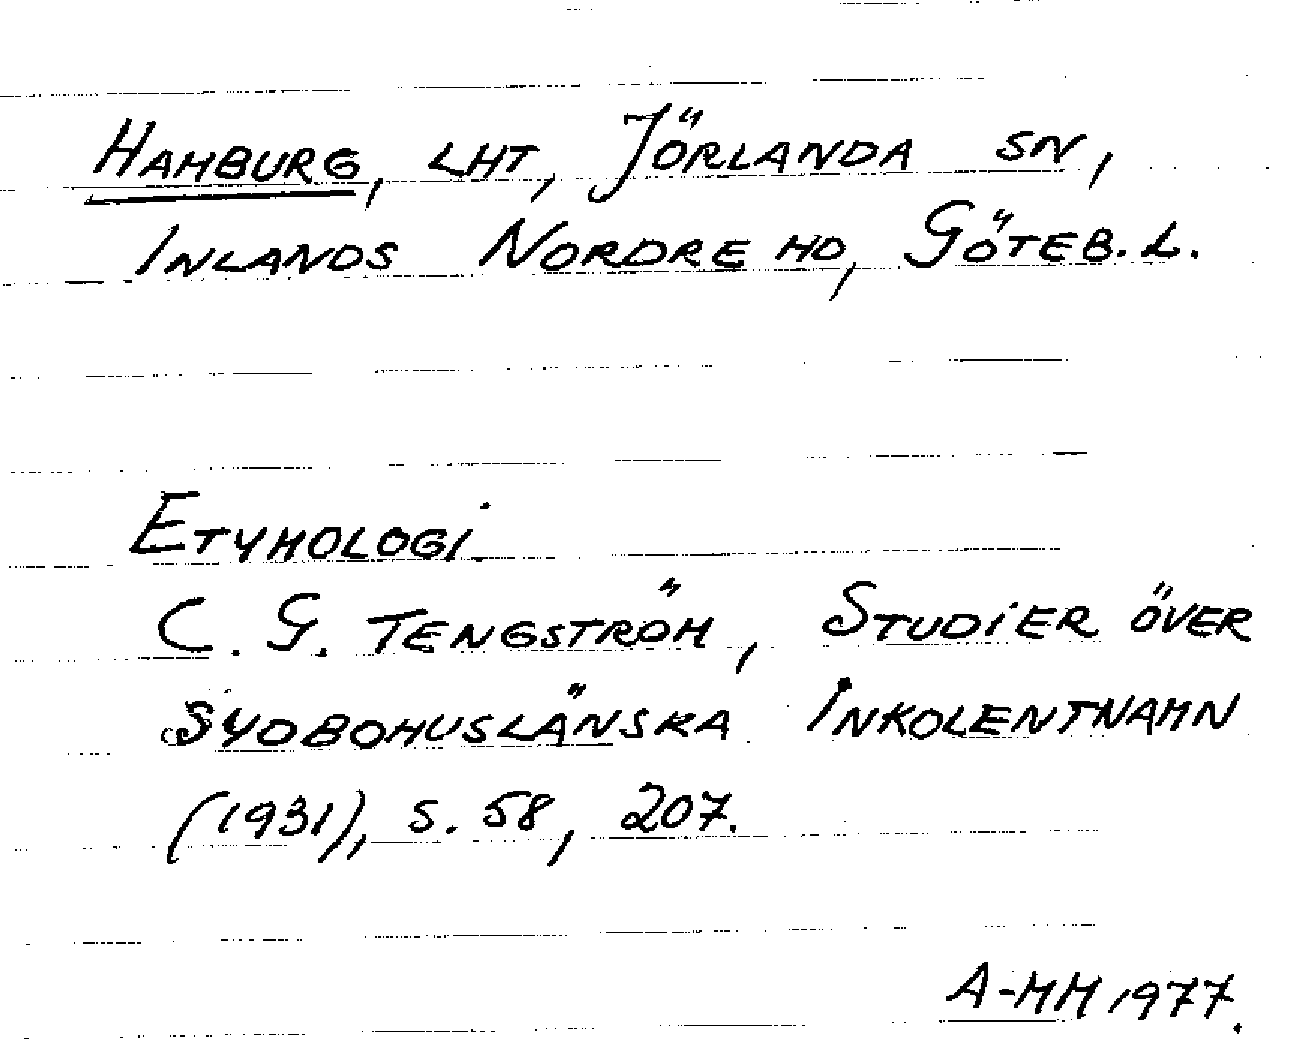 HAMBURG, LHT, JÖRLANDA SN,
INLANDS NORDRE HD, GÖTEB. L.
ETYMOLOGI
C. G. TENGSTRÖM, STUDIER ÖVER
SYDBOHUSLÄNSKA INKOLENTNAMN
(1931), S. 58, 207.
A-MM 1977.